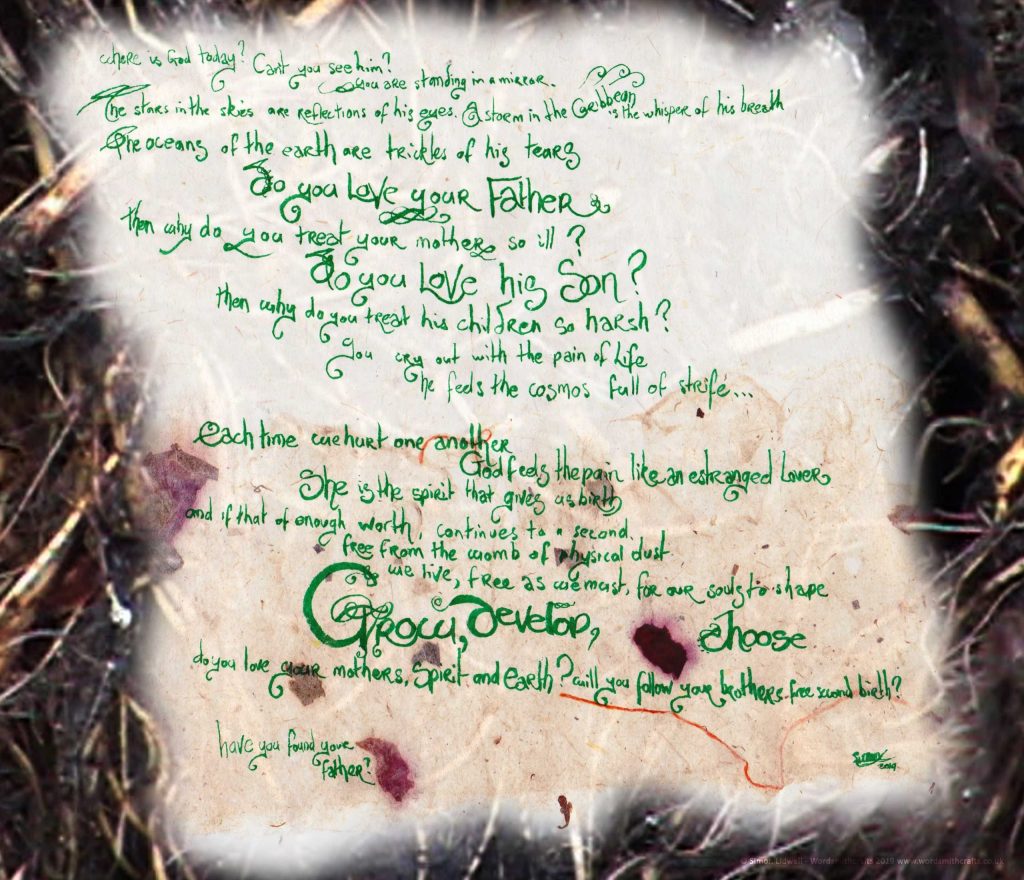 where is God today? Can't you see him?
you are standing in a mirror.
The stars in the skies are reflections of his eyes. A storm in the Caribbean is the whisper of his breath
The oceans of the earth are trickles of his tears
Do you Love your Father
then why do you treat your mothers so ill?
Do you Love his Son?
then why do you treat his children so harsh?
you cry out with the pain of Life
he feels the cosmos full of strife...
Each time we hurt one another
God feels the pain like an estranged Lover
She is the spirit that gives us birth
and if that of enough worth, continues to a second.
free from the womb of physical dust
we live, free as we must, for our souls to shape
Grow, Develop, choose
do you love your mothers, Spirit and earth? will you follow your brothers free second birth?
have you found your
father?
Simon
2019
© Simon Lidwell - Wordsmithcrafts 2019 www.wordsmithcrafts.co.uk